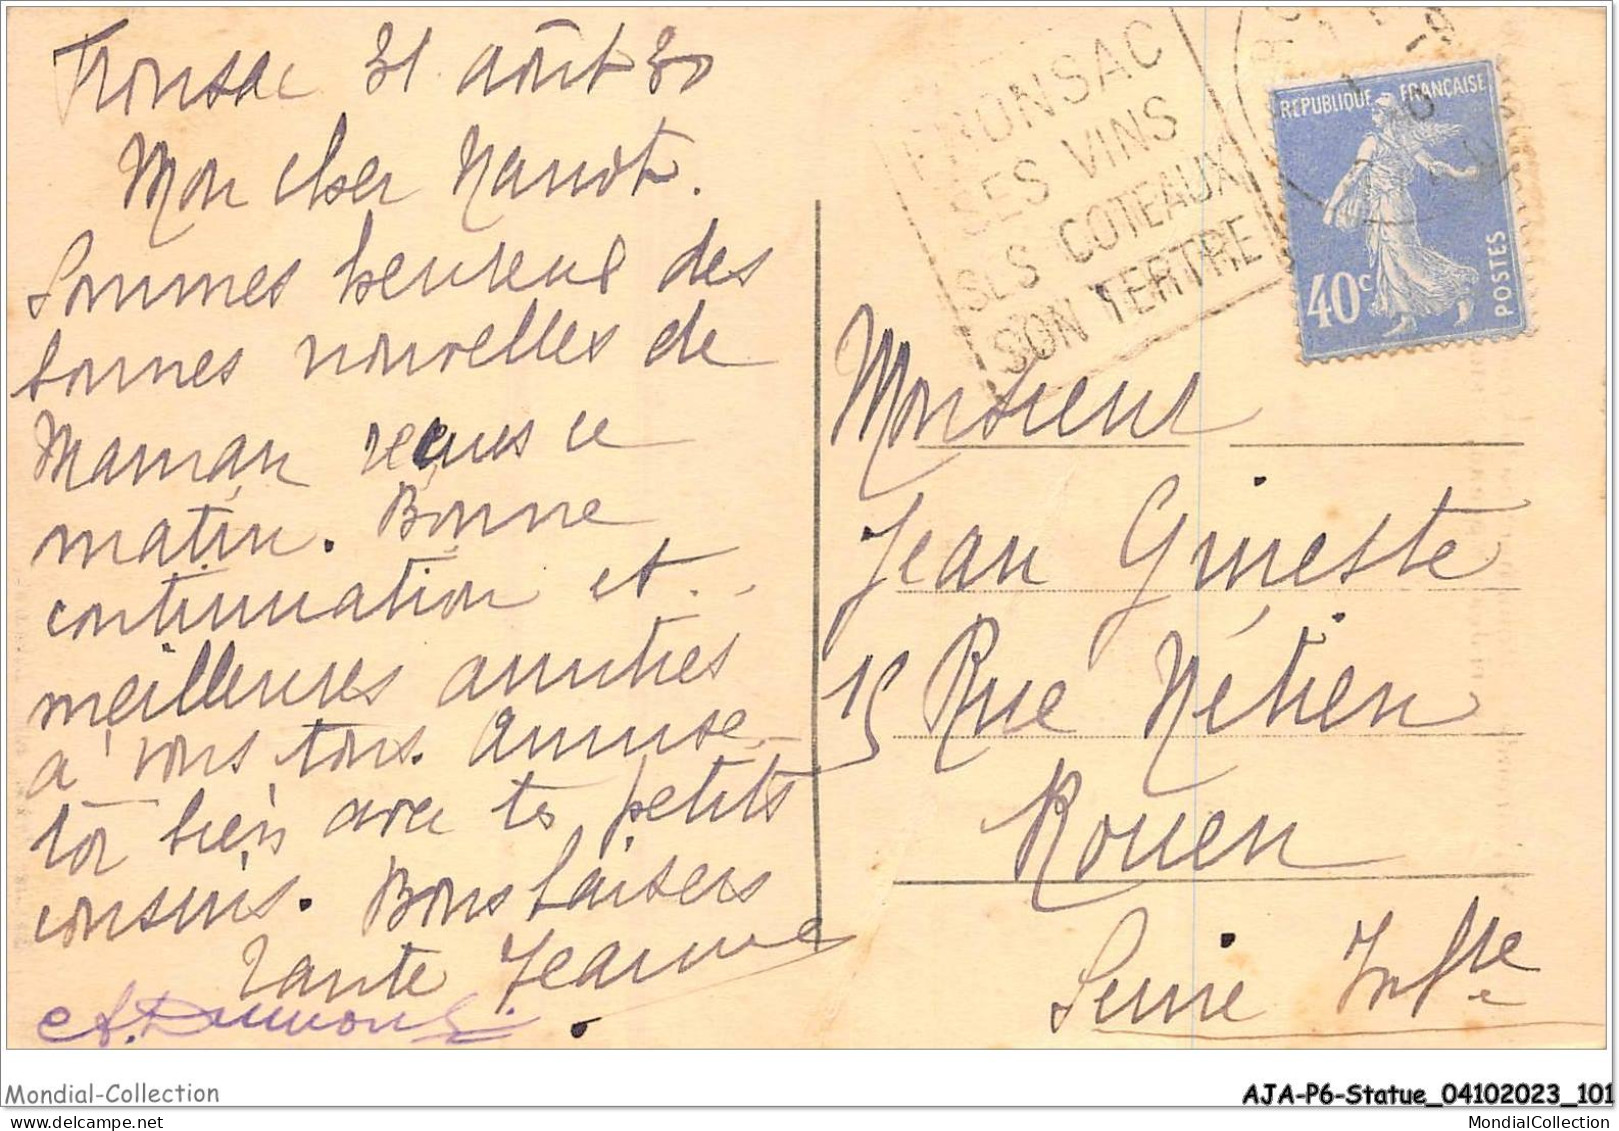 Fronsac 31 août 30
Mon cher Nanot.
Sommes heureux des
bonnes nouvelles de
Maman reçues ce
matin. Bonne
continuation et
meilleures amitiés
à vous tous. Amuse-
toi bien avec tes petits
cousins. Bons baisers
Tante Jeanne
A. Dumont
FRONSAC
SES VINS
SES COTEAUX
SON TERTRE
REPUBLIQUE FRANÇAISE
40c
POSTES
Monsieur
Jean Gineste
15 Rue Nétien
Rouen
Seine Infre
Mondial-Collection
AJA-P6-Statue_04102023_101
MondialCollection